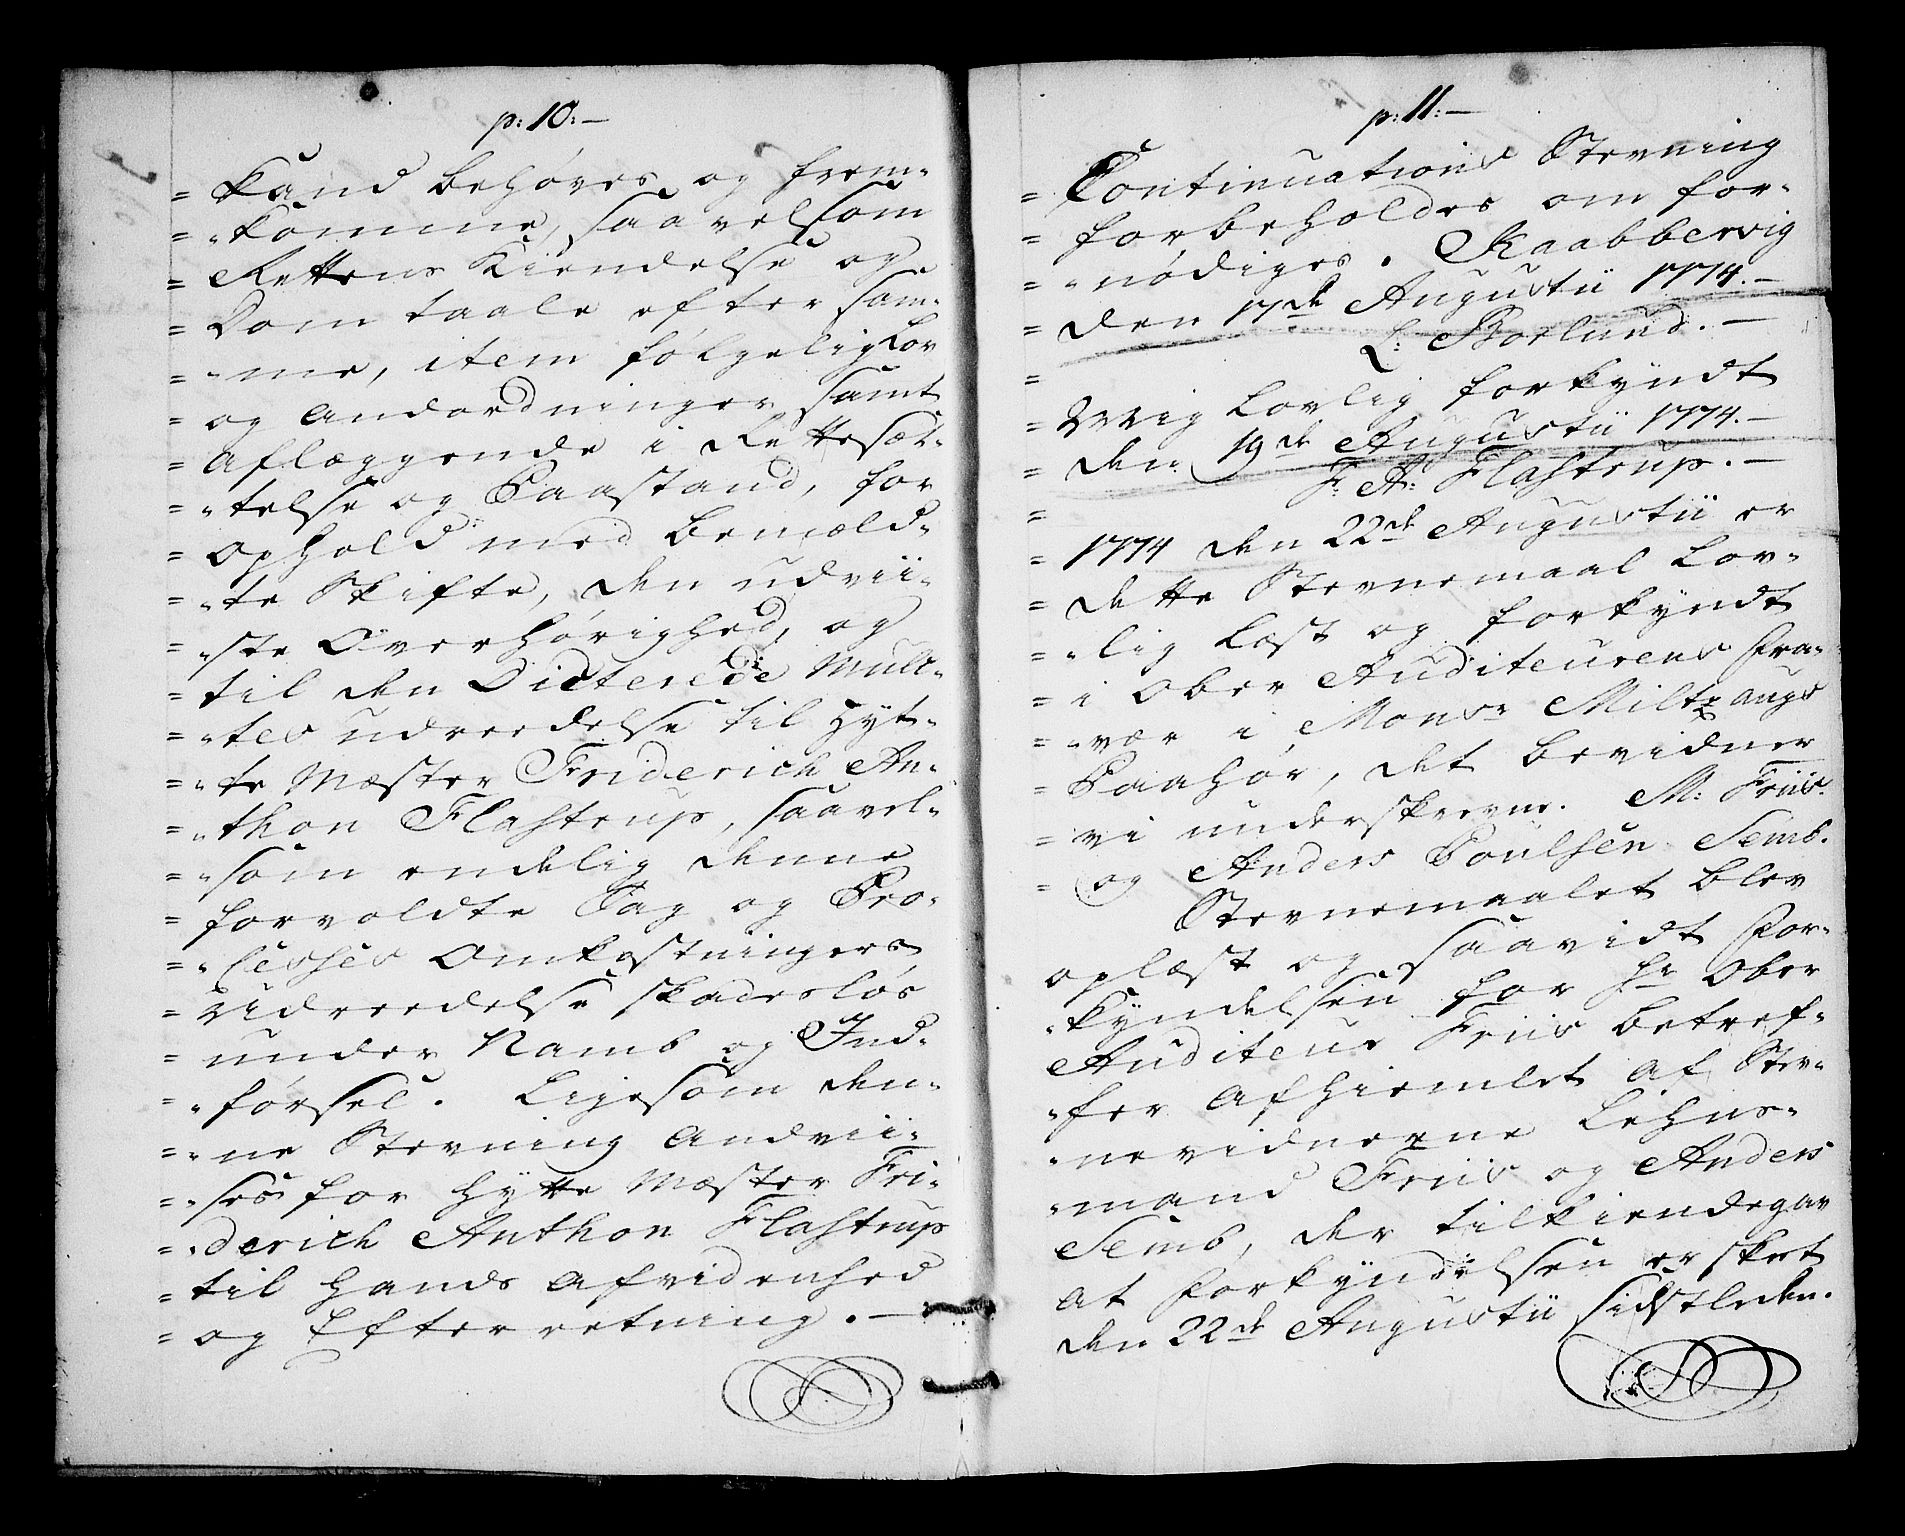 p: 10: –
= kand behøves og frem-
= "komme, saavelsom
= Rettens Kiendelse og
= Dom taale efter sam-
= "me, item følgelig Lov
= og Andordninger samt
= aflæggende i Rettesæt-
= "telse og Paastand, for
= ophold med bemeld-
= "te Skifte, den udvii-
= "ste Overhørighed, og
= til den Dicterede Mulc-
= "tes udreedelse til Hyt-
= "te Mæster Friderich An-
= "thon Flastrup, saavel-
= "som endelig denne
= forvoldte Sag og Pro-
= "cesses Omkostningers
= Udreedelse skadesløs
= under Namb og Ind-
= "førsel. Ligesom den-
= "ne Stevning andvii-
= "ses for Hytte Mæster Fri-
= "derich Anthon Flastrup
= til hands Afvidenhed
= og Efterretning. –
p: 11: –
= Continuations Stevning
= forbeholdes om for-
= "nødiges. Kaabbervig
= den 17de Augustii 1774. –
= L: Borlund. –
= Mig Lovlig forkyndt
= den 19de Augustii 1774. –
= F: A: Flastrup. –
= 1774 den 22de Augustii er
= dette Stevnemaal Lov-
= "lig Læst og forkyndt
= i Ober Auditeurens Fra-
= "vær i Monsr Miltzaugs
= Paahør, det bevidner
= vi underskrevne. M: Friis.
= og Anders Poulsen Semb.
Stevnemaalet blev
oplæst og saavidt For-
"kyndelsen for Hr Ober
Auditeur Friis betref-
"fer afhiemlet af Stev-
"nevidnerne Lehns-
"mand Friis og Anders
Semb, der tilkiendegav
at Forkyndelsen er skeet
den 22de Augustii sidstleden.